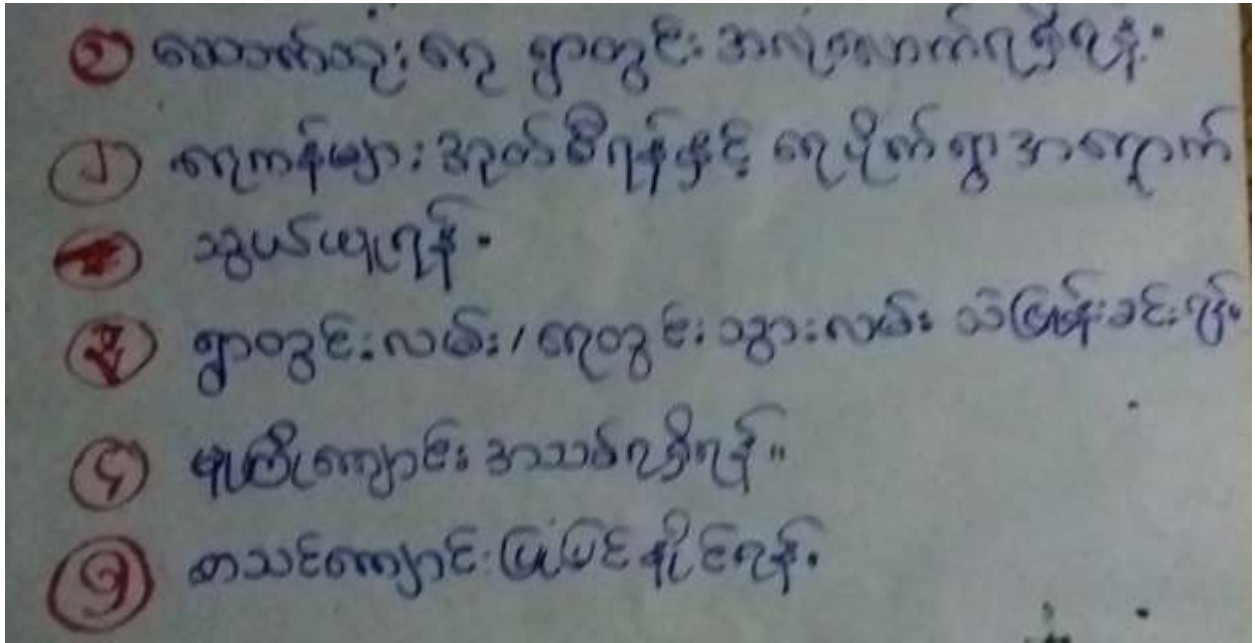 ၁ သောက်သုံးရေ ရွာတွင်း အလုံလောက်ရရှိရန်.
၂ ရေကန်များ အုတ်စီရန်နှင့် ရေပိုက် ရွာအရောက်
သွယ်ယူရန်.
၃ ရွာတွင်းလမ်း/ရေတွင်းသွားလမ်း သဲဖြန့်ခင်းရန်.
၄ မူကြိုကျောင်း အသစ်ရရှိရန်။
၅ စာသင်ကျောင်း ပြုပြင်နိုင်ရန်.